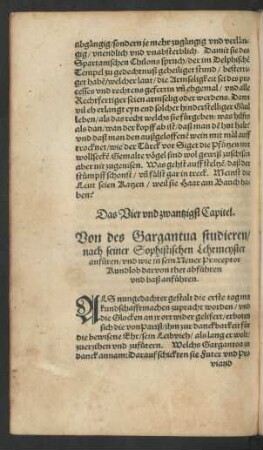 abgängig/ sondern je mehr zugängig vnd verlän-
gig/ vnendlich vnd vnabsterblich. Damit sie des
Spartanischen Chilons spruch/ der im Delphische
Tempel zu gedechtnuß geheiliget stund/ bestetti-
get habe/ welcher laut/ die Armseligkeit sei des pro-
cesses vnd rechtens gefertin vñ ehgemal/ vnd alle
Rechtfertiger seien armselig oder werden. Dann
vil eh erlangt eyn end solcher hinderstelliger Gül
leben/ als das recht welchs sie fürgeben: was hilfts
als dan/ wan der kopff ab ist/ daß man dē hut hab/
vnd daß man den außgeloffenē wein mit mäl auff
trocknet/ wie der Türck vor Siget die Pfützen mit
wollseckē? Gemalte vögel sind wol gewiß zuschiesen
aber nit zugenisen. Was geht auff stelzē/ daß der
stümpff schonst/ vñ fällst gar in treck. Meinst die
Leut seien Katzen/ weil sie Haar am Bauch ha-
ben?
Das Vier vnd zwantzigst Capitel.
Von des Gargantua studieren/
nach seiner Sophistischen Lehrmeyster
anfüren/ vnd wie in sein Neuer Preceptor
Kundlob darvon thet abführen
vnd baß anführen.
ALS nun gedachter gestalt die erste tag mit
kundschafft machen zupracht worden/ vnd
die Glocken an jr ort wider gelifert/ erboten
sich die von Pariß/ jhm zur danckbarkeit für
die bewisene Ehr/ sein Leibvich/ als lang er wolt/
zuerziehen vnd zufütern. Welchs Gargantoa in
danck annam: Darauf schickten sie Futer vnd Pro
viand